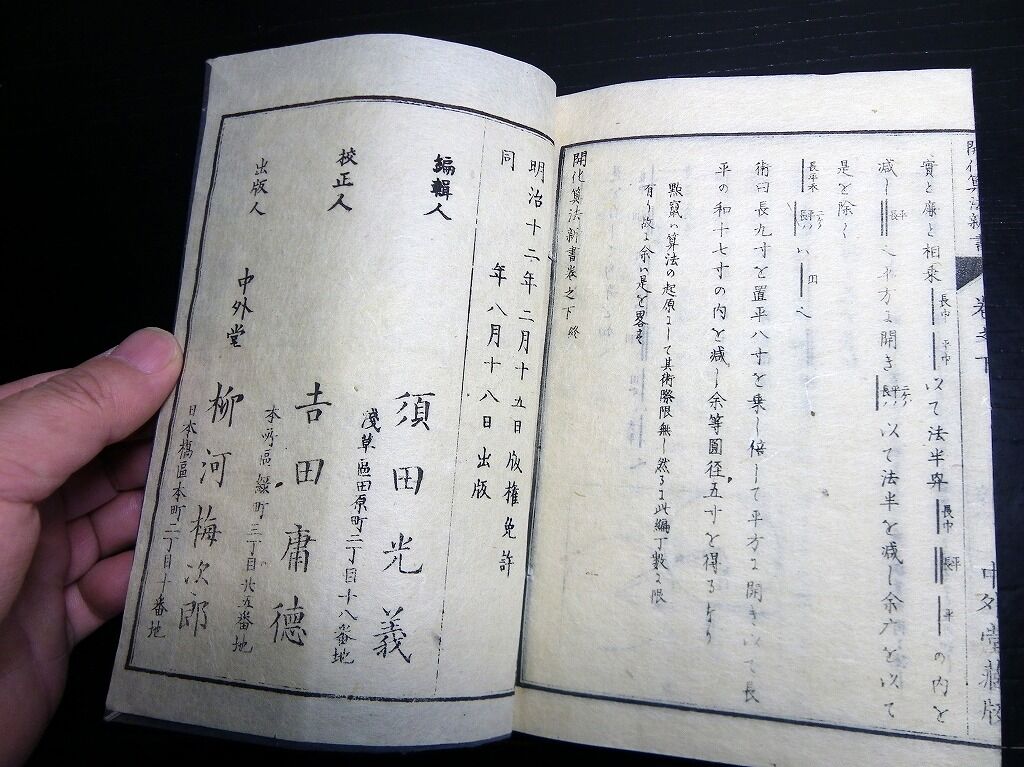 開化算法新書
巻之下
中外堂蔵版
實と廉と相乗長巾平巾以て法半宰長巾長平平の内を
減し長平之平方に開き二ケノ長平ハ以て法半を減し余六を以て
是を除く
長平木二ケノ長平ハ八田之
術曰長九寸を置平八寸を乗し倍して平方に開き以て長
平の和十七寸の内を減し余等圓径五寸を得るなり
點竄ハ算法の起原にして其術際限無し然るに此編丁数に限
有り故に余ハ是を畧す
開化算法新書巻之下終
明治十二年二月十五日版権免許
同年八月十八日出版
編輯人
須田光義
淺草區田原町二丁目十八番地
校正人
吉田庸徳
本所區緑町三丁目廿五番地
出版人
中外堂
柳河梅次郎
日本橋區本町二丁目十番地